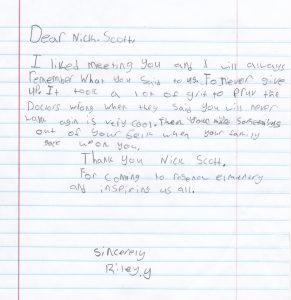 Dear Nick Scott,
I liked meeting you and I will always
remember what you said to us. To never give
up. It took a lot of grit to pruv the
Doctors wrong when they said you will never
walk agin is very cool. Then your
out of your when your family
upon you.
Thank you Nick Scott.
For coming to elmentary
and inspiring us all.
Sincerely
Riley.y